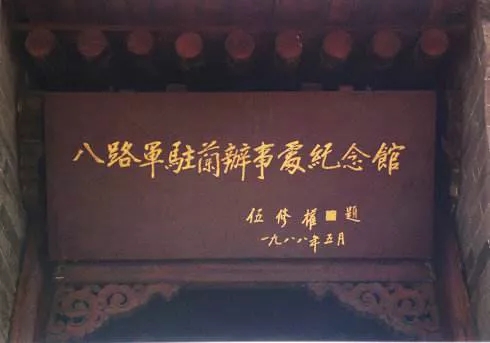 八路軍駐蘭辦事處紀念館
伍修權 題
一九八八年五月